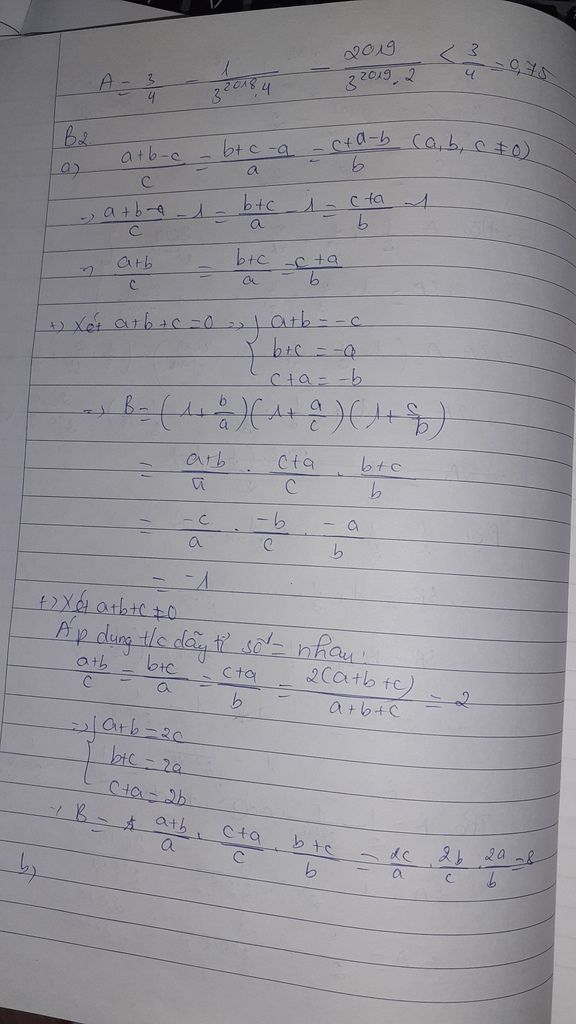 A = 3/4 - 1/(3^2018.4) - 2019/(3^2019.2) < 3/4 = 0,75
B2
a) (a+b-c)/c = (b+c-a)/a = (c+a-b)/b (a, b, c ≠ 0)
→ (a+b-a)/c - 1 = (b+c)/a - 1 = (c+a)/b - 1
→ (a+b)/c = (b+c)/a = (c+a)/b
+) Xét a+b+c=0 => { a+b = -c
b+c = -a
c+a = -b
=> B = (1 + b/a)(1 + a/c)(1 + c/b)
= (a+b)/a . (c+a)/c . (b+c)/b
= -c/a . -b/c . -a/b
= -1
+) Xét a+b+c ≠ 0
Áp dụng t/c dãy tỉ số = nhau:
(a+b)/c = (b+c)/a = (c+a)/b = 2(a+b+c)/(a+b+c) = 2
=> { a+b = 2c
b+c = 2a
c+a = 2b
→ B = (a+b)/a . (c+a)/c . (b+c)/b = 2c/a . 2b/c . 2a/b = 8
b)